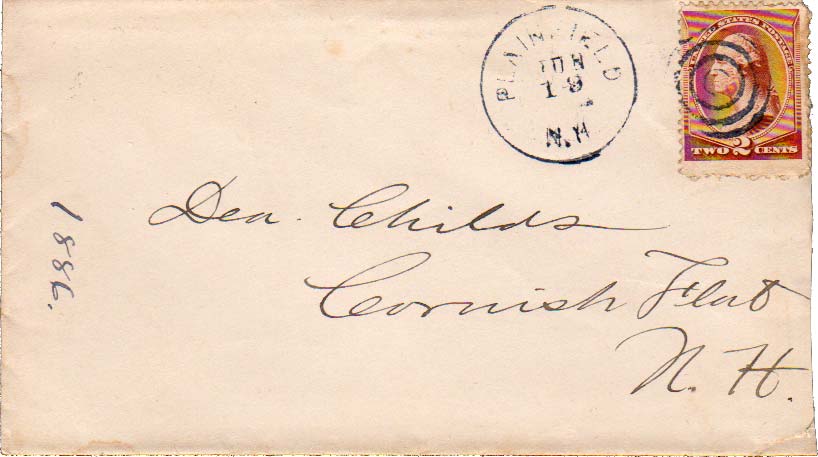 PLAINFIELD
JUN
19
N.H
UNITED STATES POSTAGE
TWO 2 CENTS
Dea. Childs
Cornish Flat
N. H.
1886.